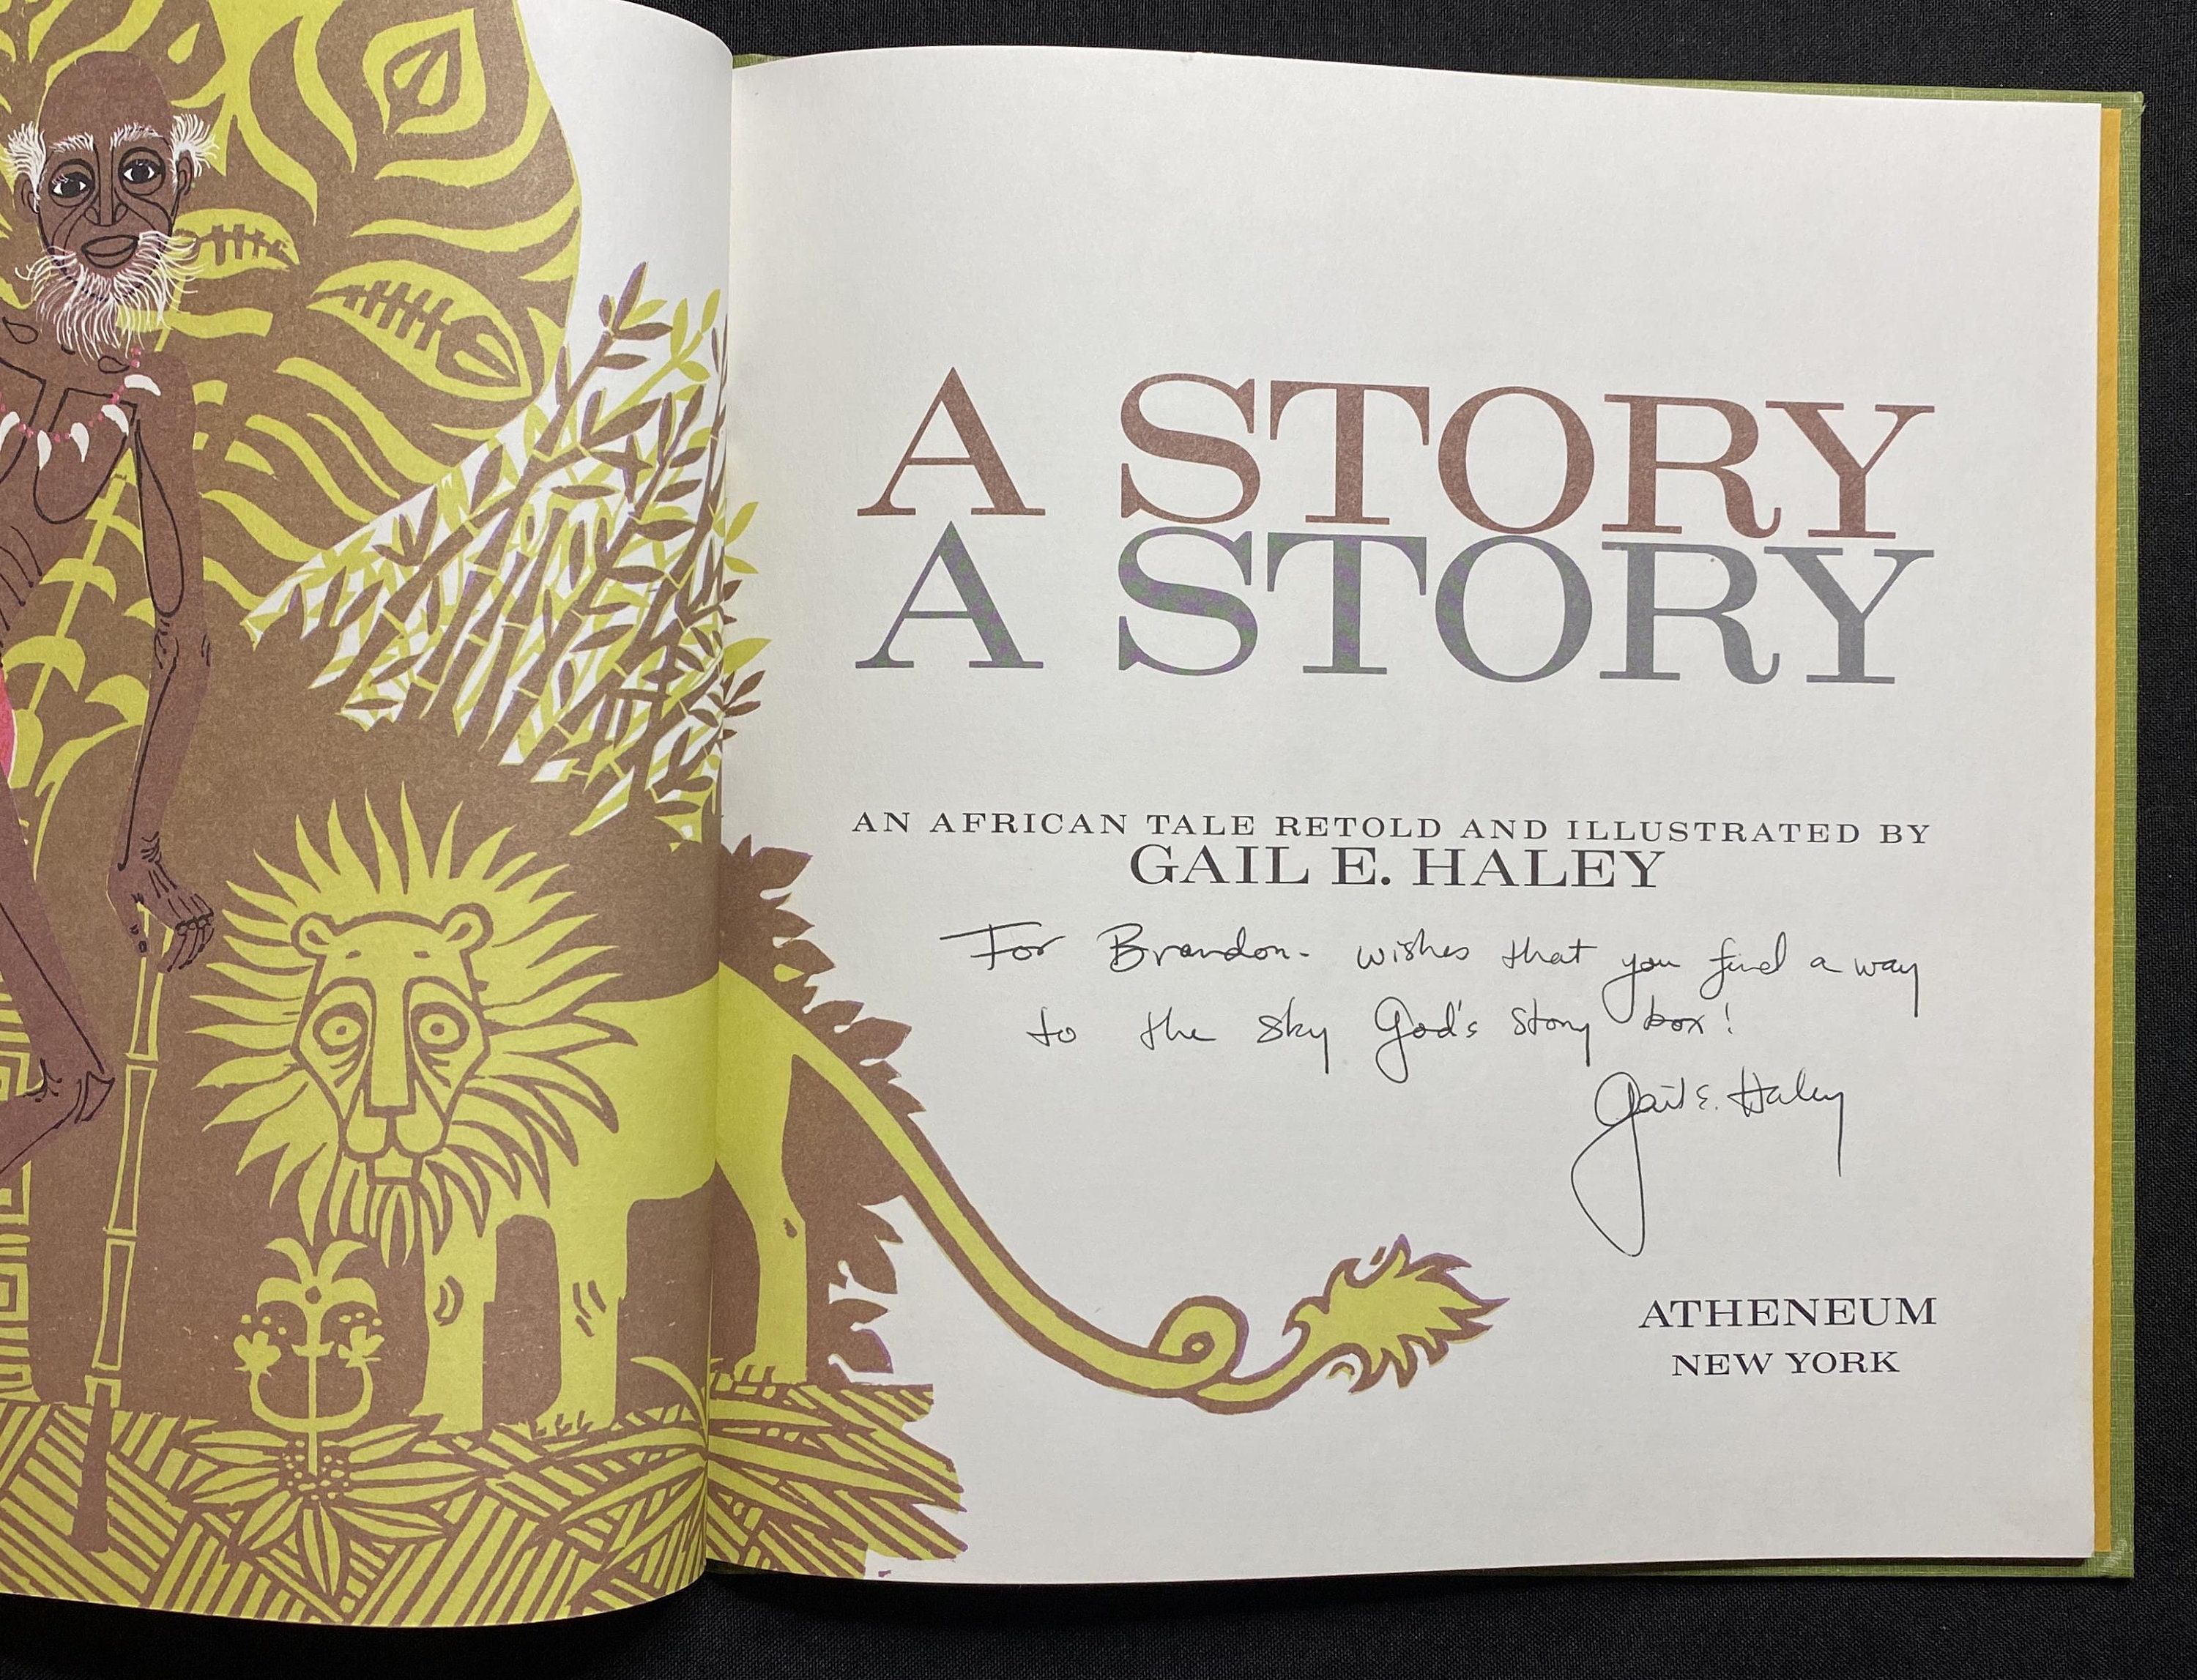 A STORY
A STORY
AN AFRICAN TALE RETOLD AND ILLUSTRATED BY
GAIL E. HALEY
For Brandon - wishes that you find a way
to the sky God's story box!
Gail E. Haley
ATHENEUM
NEW YORK